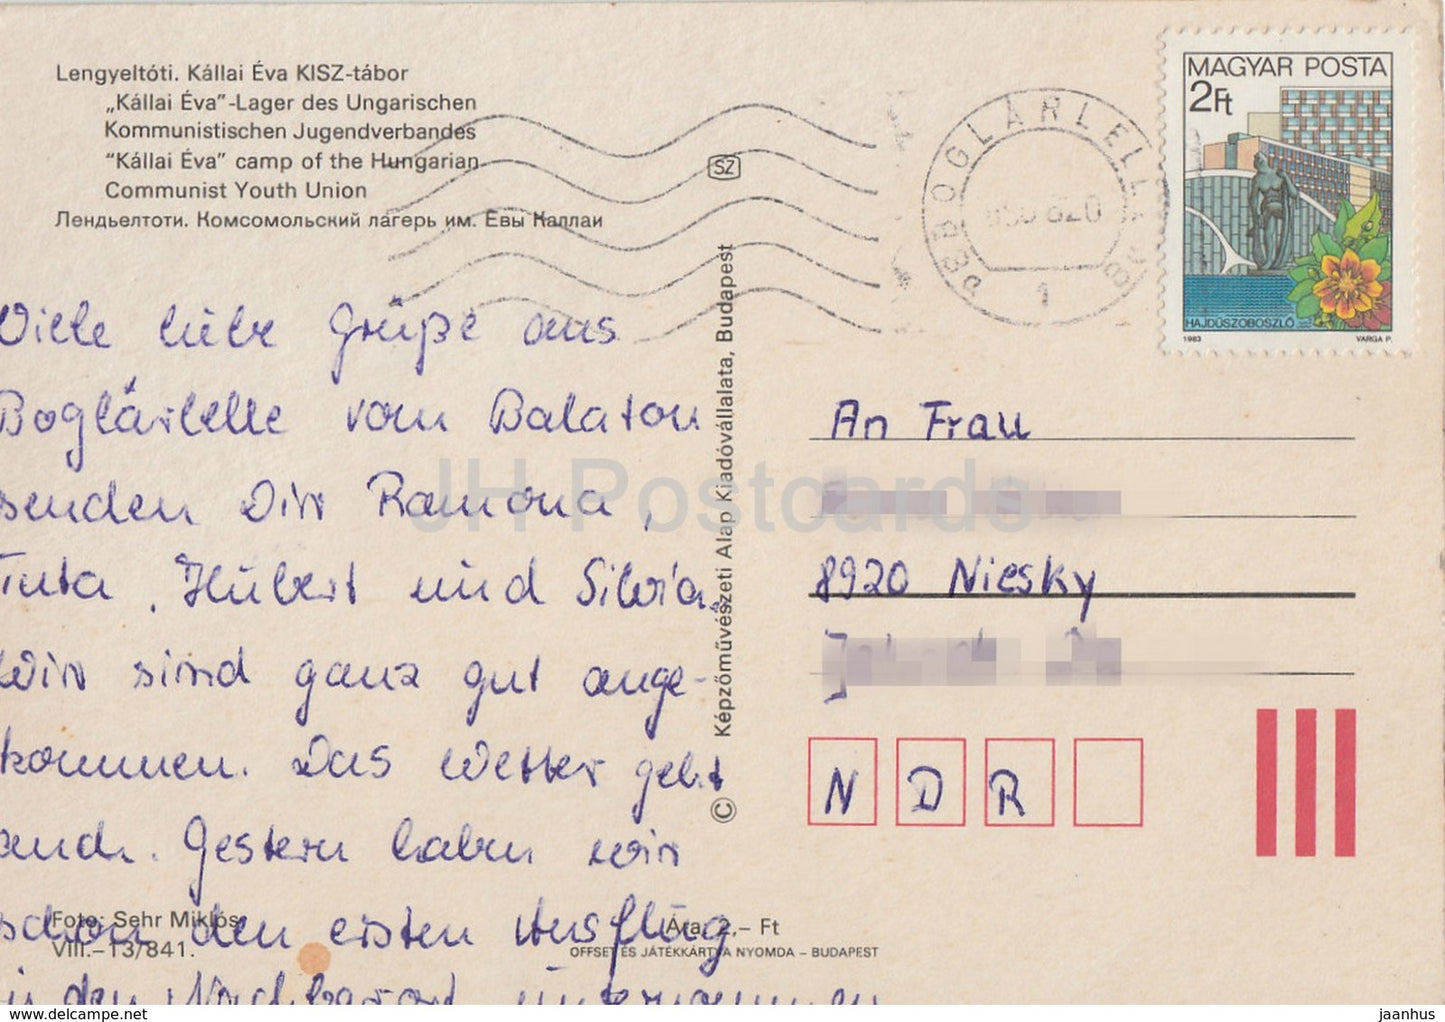 Lengyeltóti. Kállai Éva KISZ-tábor
„Kállai Éva”-Lager des Ungarischen
Kommunistischen Jugendverbandes
“Kállai Éva” camp of the Hungarian
Communist Youth Union
Лендьелтоти. Комсомольский лагерь им. Евы Каллаи
SZ
BOGLÁRLELLE
1
MAGYAR POSTA
2Ft
HAJDÚSZOBOSZLÓ
1983 VARGA P.
Viele liebe Grüße aus
Boglárlelle vom Balaton
senden Dir Ramona,
Tuta, Hubert und Silvia.
Wir sind ganz gut ange-
kommen. Das Wetter geht
auch. Gestern haben wir
schon den ersten Ausflug
in den Nachbarort unternommen
© Képzőművészeti Alap Kiadóvállalata, Budapest
An Frau
8920 Niesky
N D R
Foto: Sehr Miklós
VIII.–13/841.
Ára: 2,– Ft
OFFSET ÉS JÁTÉKKÁRTYA NYOMDA – BUDAPEST
JH Postcards
www.jhpostcard.com
jaanhus